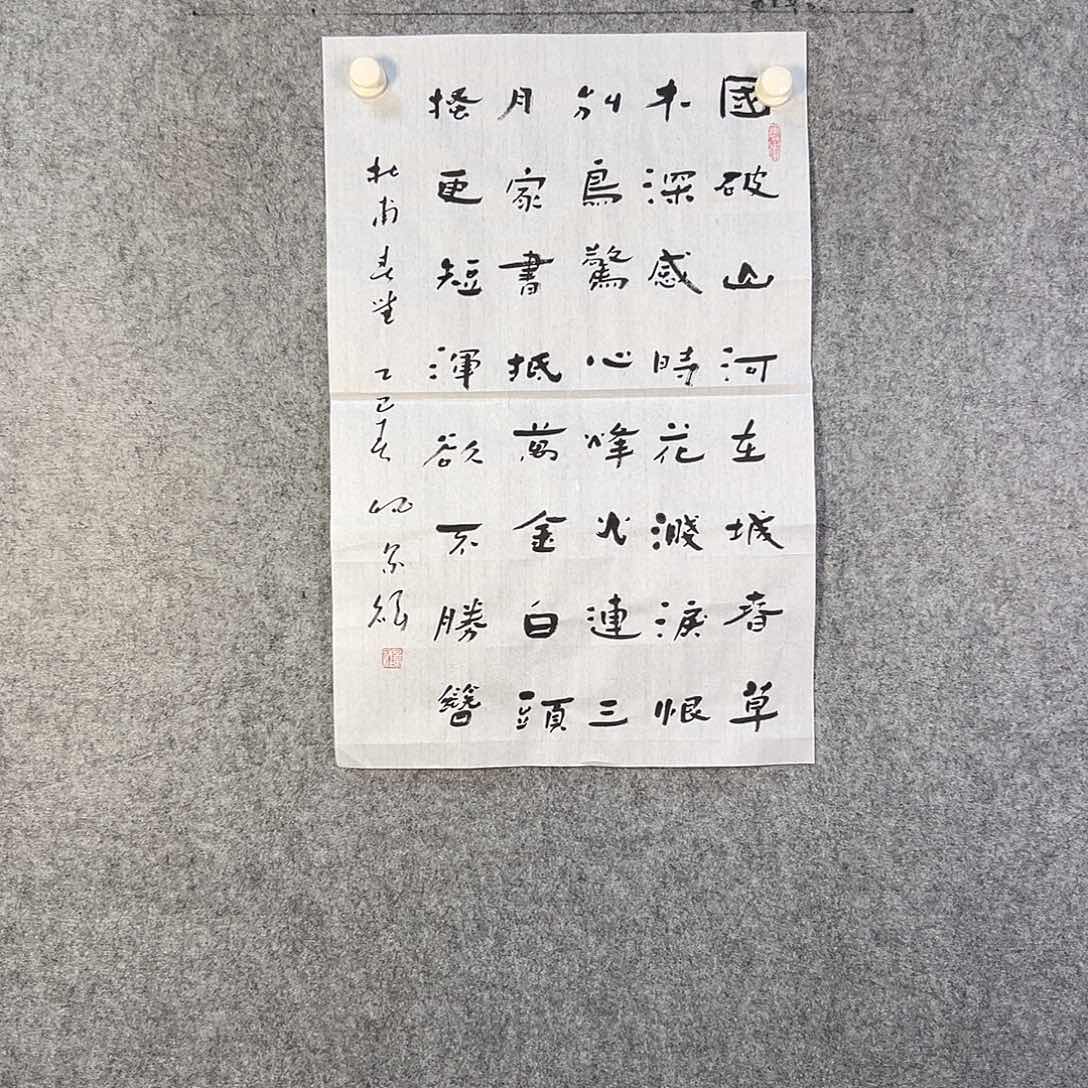 國破山河在城春草
木深感時花濺淚恨
別鳥驚心烽火連三
月家書抵萬金白頭
搔更短渾欲不勝簪
杜甫春望 乙巳春